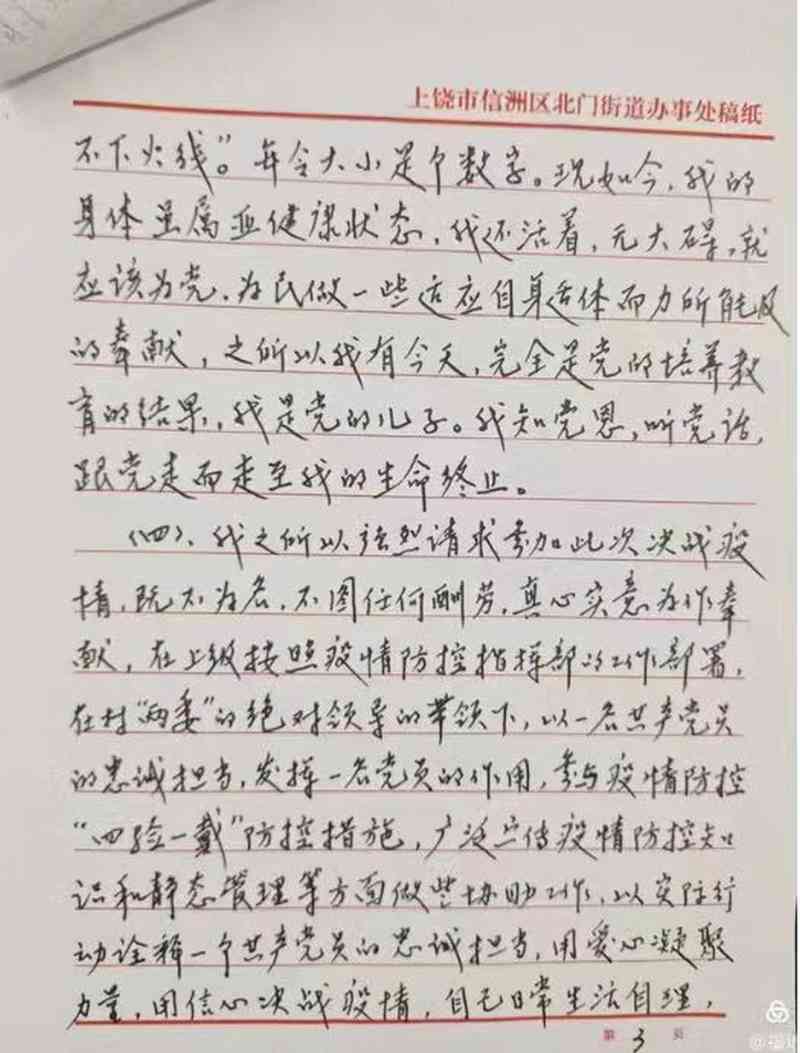 上饶市信洲区北门街道办事处稿纸
不下火线”。年令大小是个数字。现如今，我的
身体虽属亚健康状态，我还活着，无大碍，就
应该为党、为民做一些适应自身活体而力所能及
的奉献，之所以我有今天，完全是党的培养教
育的结果，我是党的儿子。我知党恩，听党话，
跟党走而走至我的生命终止。
（四）、我之所以强烈请求参加此次决战疫
情，既不为名、不图任何酬劳，真心实意为作奉
献，在上级按照疫情防控指挥部的工作部署，
在村“两委”的绝对领导的带领下，以一名共产党员
的忠诚担当，发挥一名党员的作用，参与疫情防控
“四验一戴”防控措施，广泛宣传疫情防控知
识和静态管理等方面做些协助工作，以实际行
动诠释一个共产党员的忠诚担当，用爱心凝聚
力量，用信心决战疫情，自己日常生活自理，
第 3 页